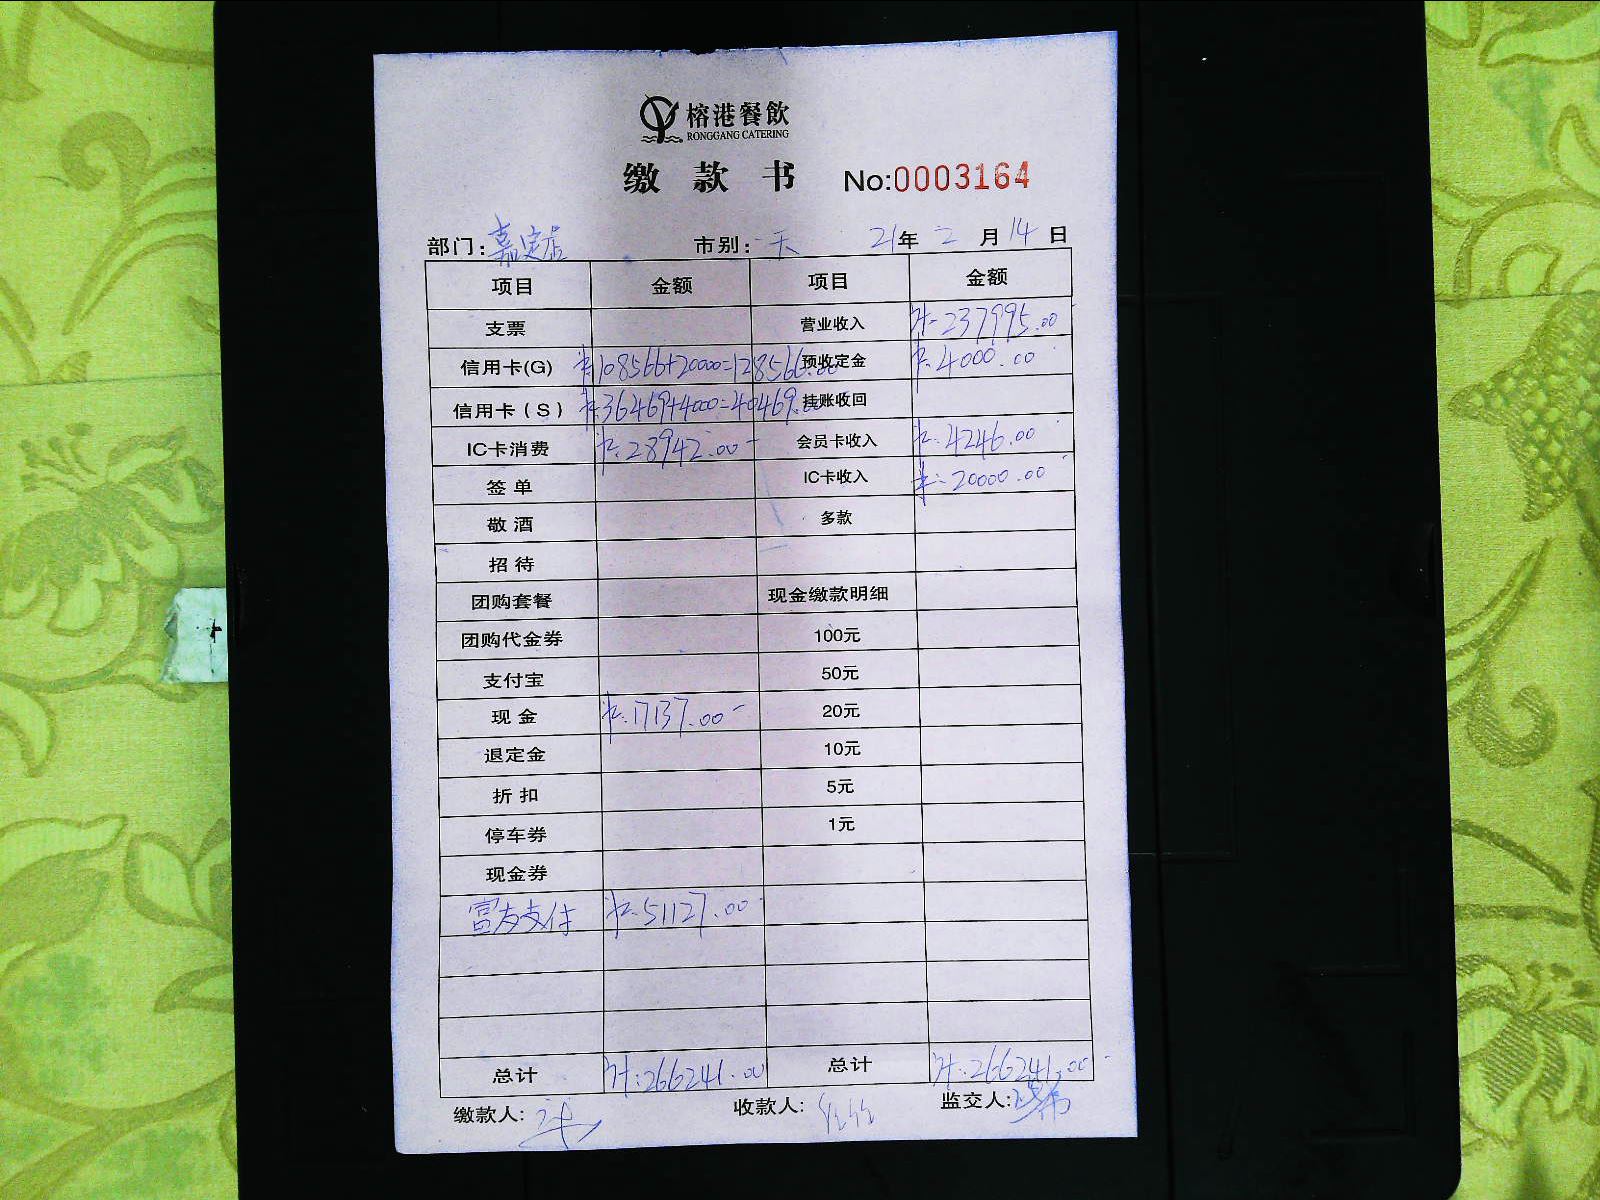 榕港餐飲
RONGGANG CATERING
缴款书 No:0003164
部门:嘉定店 市别:一天 21年二月14日
项目 金额 项目 金额
支票 营业收入 计:237995.00
信用卡(G) 计:108566+20000=128566.00 预收定金 计:4000.00
信用卡(S) 计:36469+4000=40469.00 挂账收回
IC卡消费 计:28942.00 会员卡收入 计:4246.00
签单 IC卡收入 计:20000.00
敬酒 多款
招待
团购套餐 现金缴款明细
团购代金券 100元
支付宝 50元
现金 计:17137.00 20元
退定金 10元
折扣 5元
停车券 1元
现金券
富友支付 计:51127.00
总计 计:266241.00 总计 计:266241.00
缴款人: 收款人: 监交人: